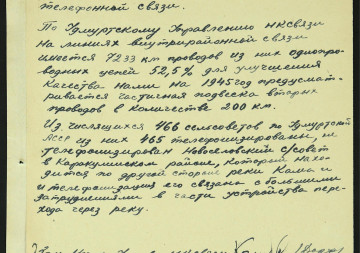 телефонной связи.
По Удмуртскому Управлению НКСвязи
на линиях внутрирайонной связи
имеется 7233 км проводов из них однопро-
водных цепей 52,5% для улучшения
качества нами на 1945 год предусмат-
ривается частичная подвеска вторых
проводов в количестве 200 км.
Из числящихся 466 сельсоветов по Удмуртской
АССР из них 465 телефонизированы, не
телефонизирован Новоселовский с/совет
в Каракулинском районе, который нахо-
дится по другой стороне реки Камы и
и телефонизация его связана с большими
затруднениями в части устройства пере-
хода через реку.